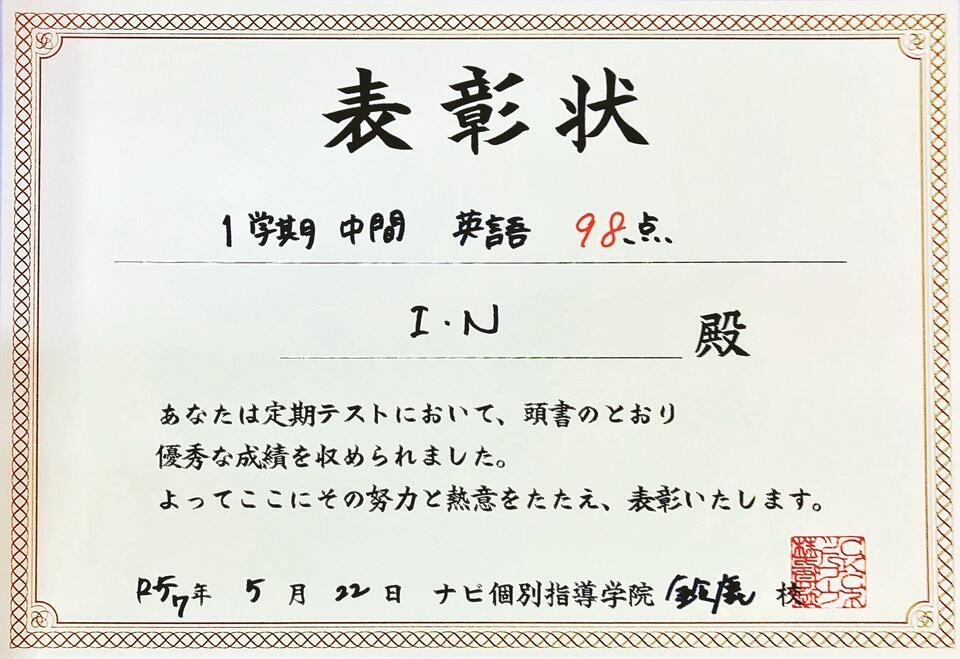 表彰状
1学期 中間 英語 98点
I・N 殿
あなたは定期テストにおいて、頭書のとおり
優秀な成績を収められました。
よってここにその努力と熱意をたたえ、表彰いたします。
年 5 月 22 日 ナビ個別指導学院 校